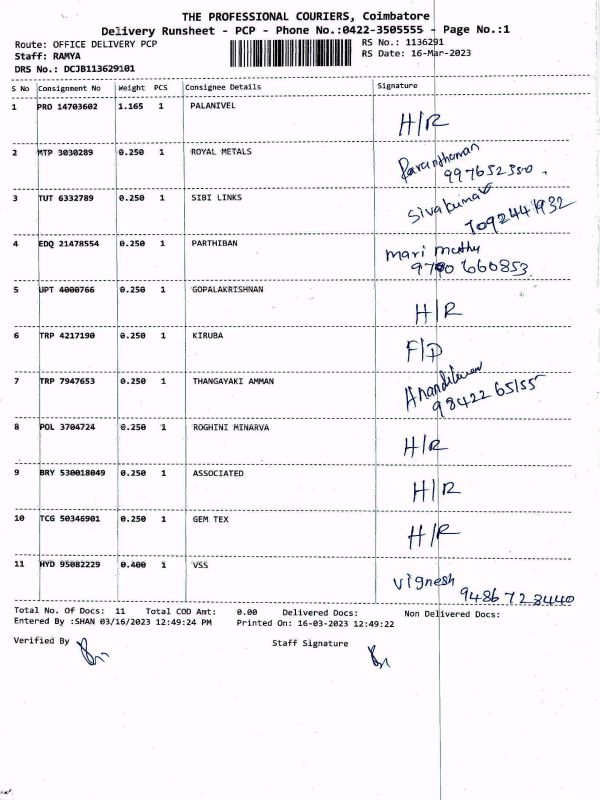 THE PROFESSIONAL COURIERS, Coimbatore
Delivery Runsheet - PCP - Phone No.:0422-3505555 - Page No.:1
Route: OFFICE DELIVERY PCP
RS No.: 1136291
Staff: RAMYA
RS Date: 16-Mar-2023
DRS No.: DCJB113629101
S No Consignment No Weight PCS Consignee Details Signature
1 PRO 14703602 1.165 1 PALANIVEL H/R
2 MTP 3030289 0.250 1 ROYAL METALS
3 TUT 6332789 0.250 1 SIBI LINKS Sivakumar
4 EDQ 21478554 0.250 1 PARTHIBAN Mari Muthu
9780 660853
5 UPT 4000766 0.250 1 GOPALAKRISHNAN H/R
6 TRP 4217190 0.250 1 KIRUBA F/D
7 TRP 7947653 0.250 1 THANGAYAKI AMMAN
98422 65155
8 POL 3704724 0.250 1 ROGHINI MINARVA H/R
9 BRY 530018049 0.250 1 ASSOCIATED H/R
10 TCG 50346901 0.250 1 GEM TEX H/R
11 HYD 95082229 0.400 1 VSS Vignesh
9486723440
Total No. Of Docs: 11 Total COD Amt: 0.00 Delivered Docs: Non Delivered Docs:
Entered By :SHAN 03/16/2023 12:49:24 PM Printed On: 16-03-2023 12:49:22
Verified By Staff Signature